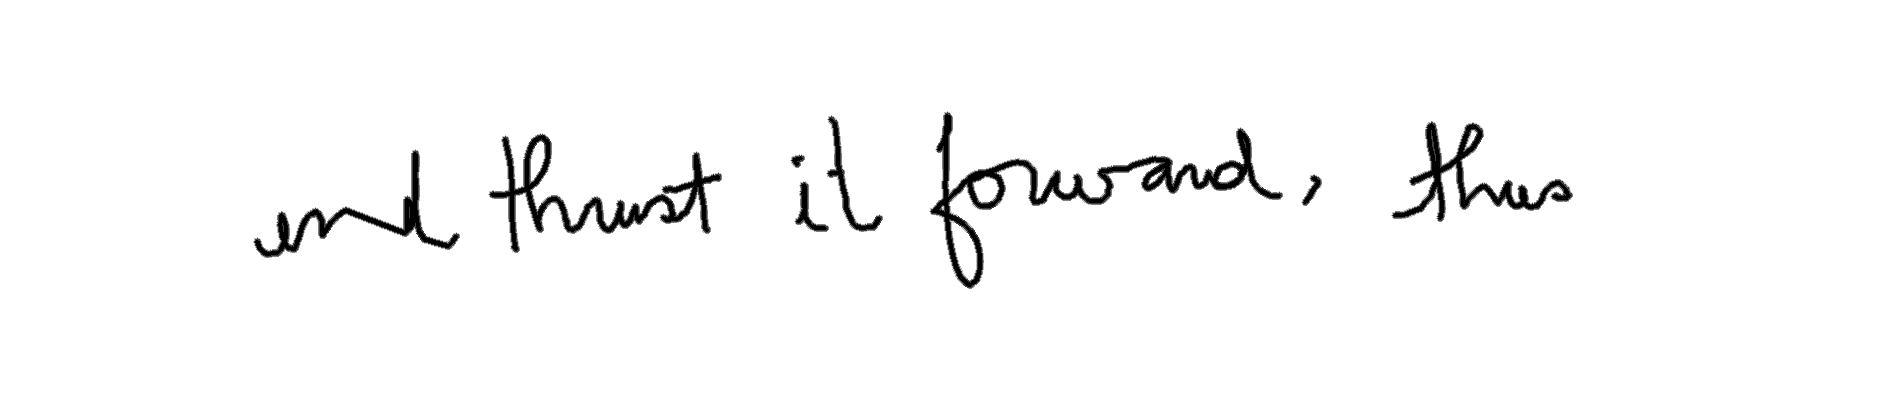 end thrust it forward, thus